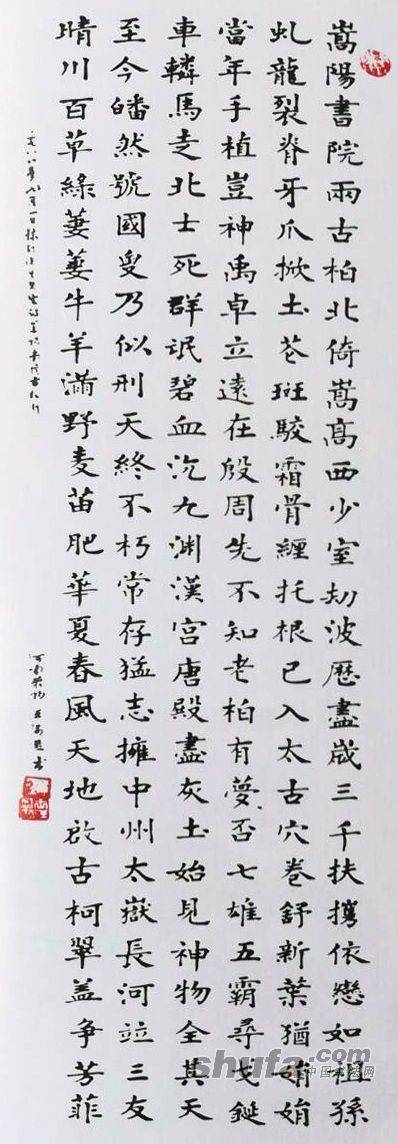 嵩陽書院兩古柏北倚嵩高西少室劫波歷盡歲三千扶攜依戀如祖孫
虬龍裂脊牙爪掀土苍斑駮霜骨纏托根已入太古穴卷舒新葉猶娟娟
當年手植豈神禹卓立遠在殷周先不知老柏有夢否七雄五霸尋戈鋋
車轔馬走北士死群氓碧血沉九渊漢宫唐殿盡灰土始見神物全其天
至今皤然號國叟乃似刑天終不朽常存猛志擁中州太嶽長河竝三友
晴川百草綠萋萋牛羊滿野麦苗肥華夏春風天地啟古柯翠蓋争芳菲
shufa.com
中国书法网